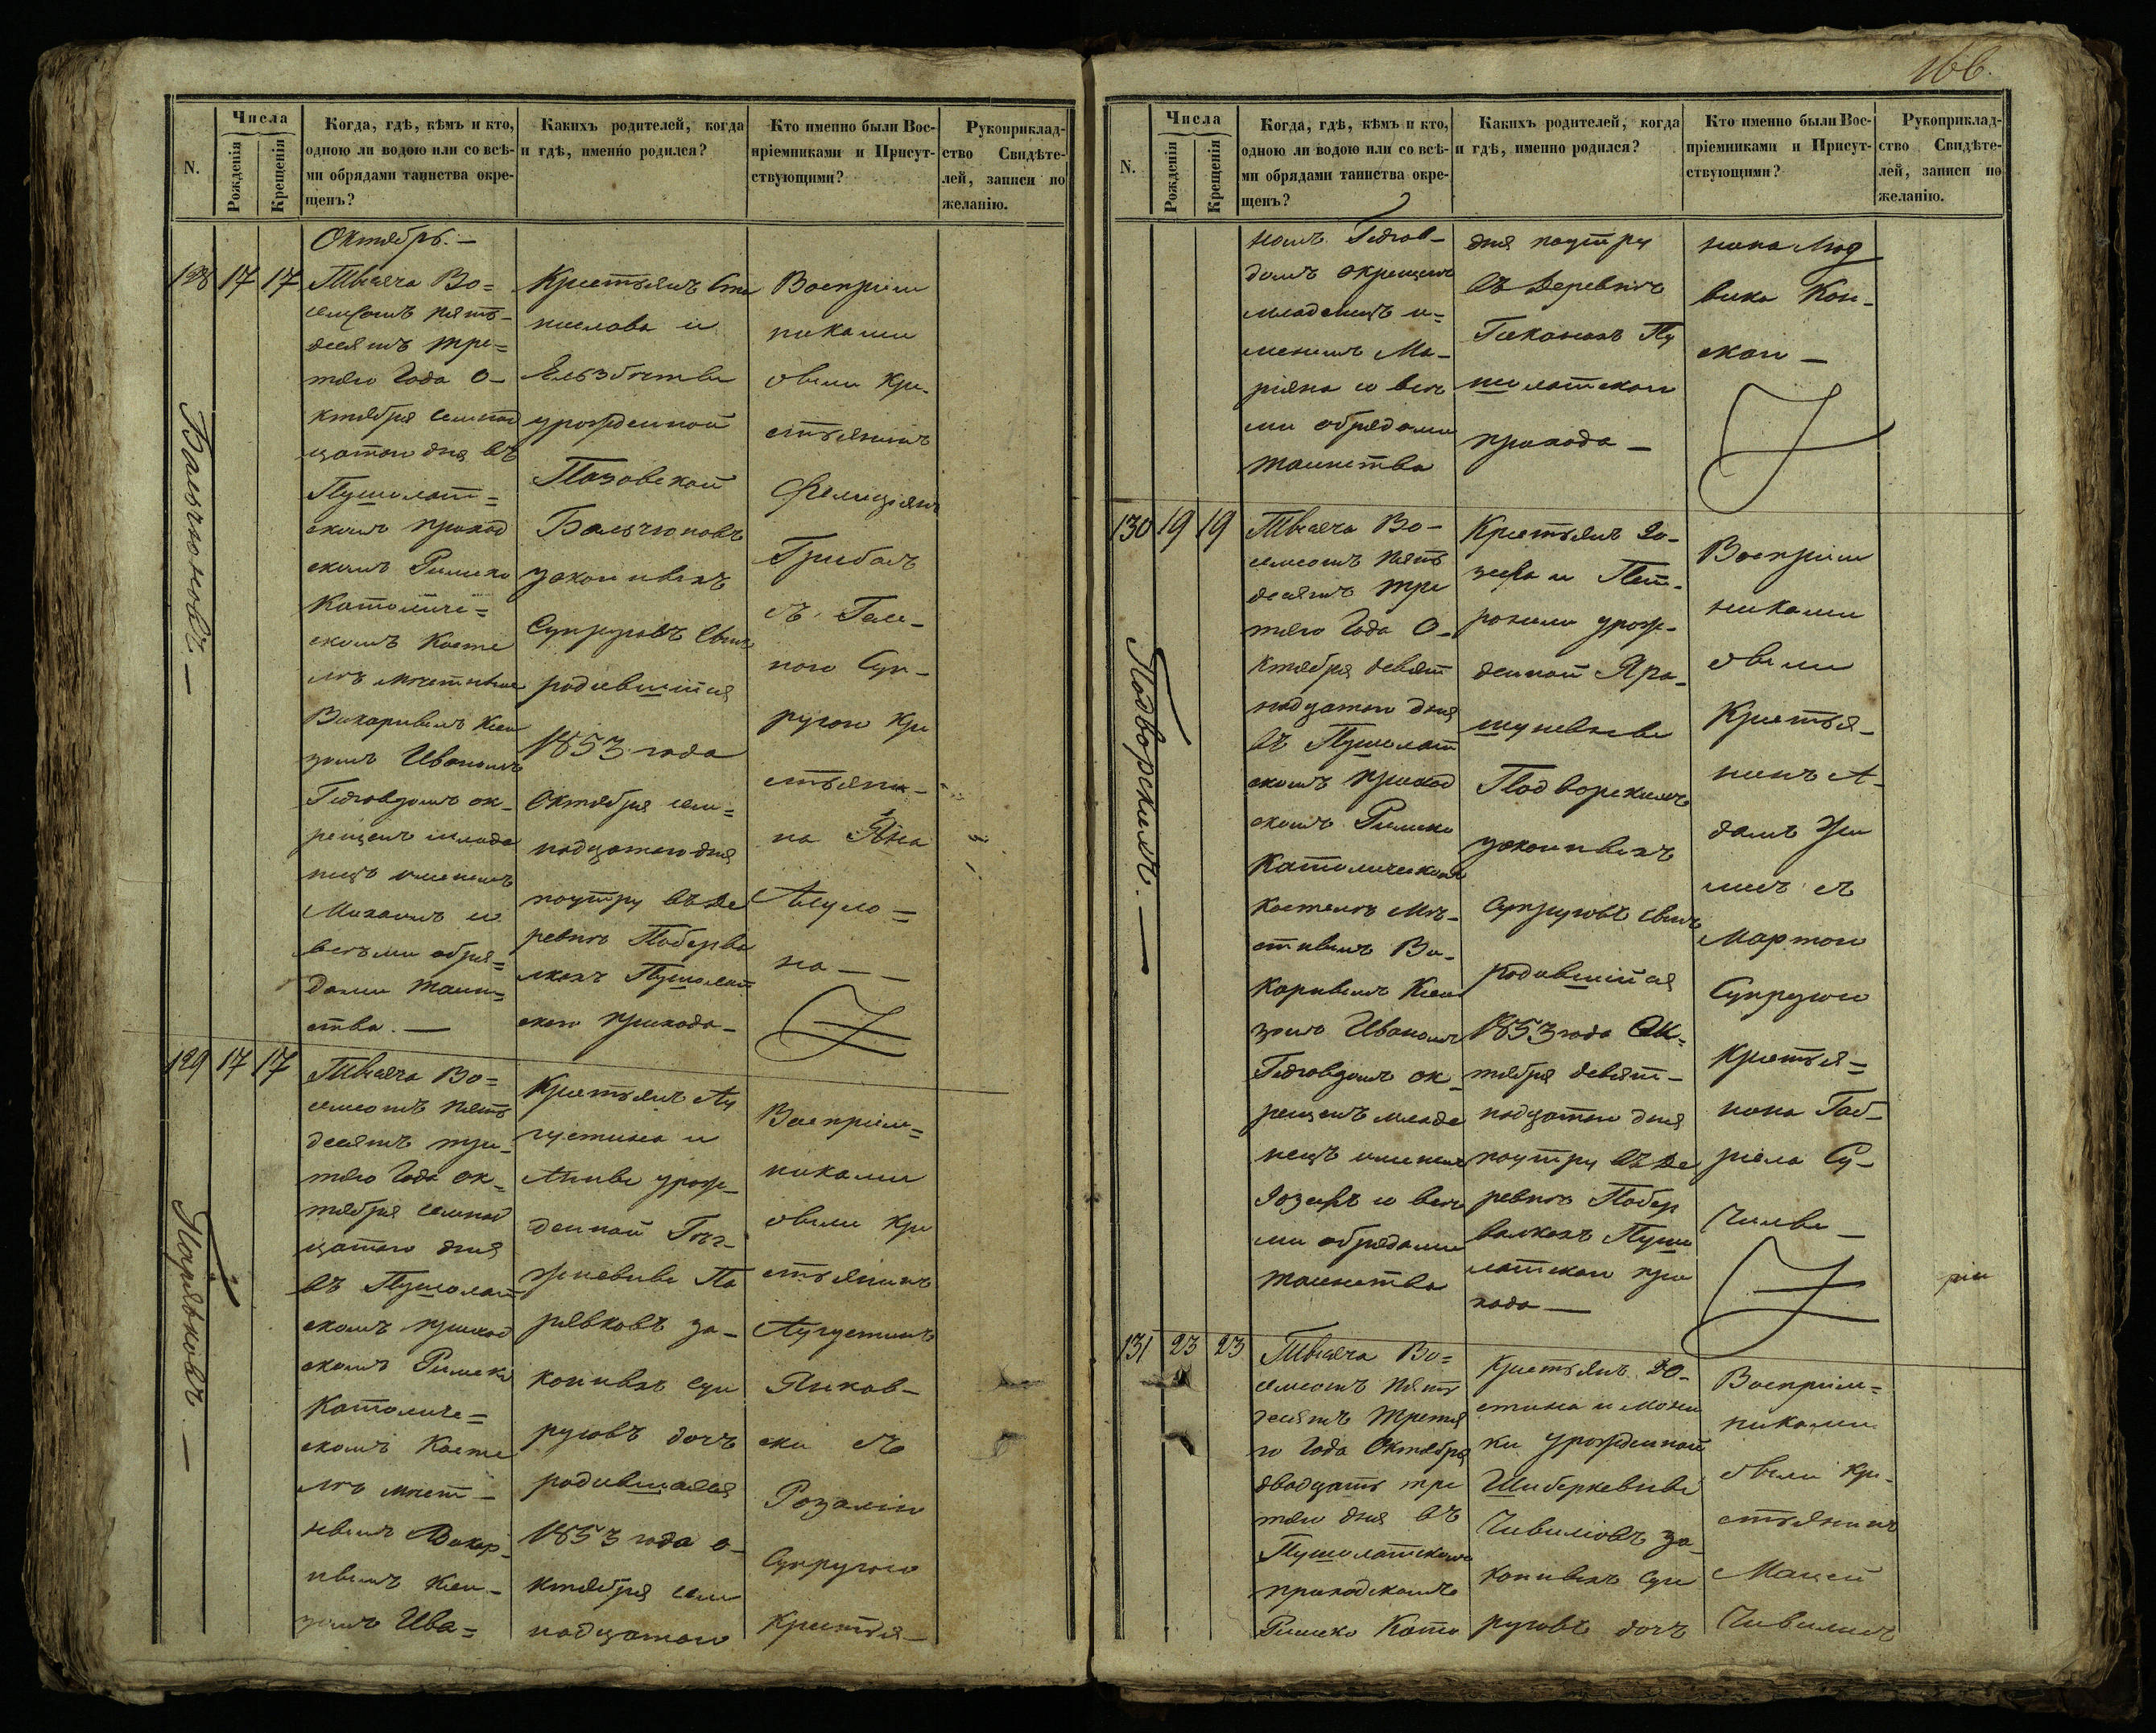 N.
Числа
Рожденія
Крещенія
Когда, гдѣ, кѣмъ и кто,
одною ли водою или со всѣ-
ми обрядами таинства окре-
щенъ?
Какихъ родителей, когда
и гдѣ, именно родился?
Кто именно были Вос-
пріемниками и Присут-
ствующими?
Рукоприклад-
ство Свидѣте-
лей, записи по
желанію.
Октябрь. —
128 17 17
Тысяча Во=
семсотъ пять-
десятъ тре=
тяго Года О-
ктября семнад
цатого дня въ
Пушолат=
скомъ приход
скомъ Римско
Католиче=
скомъ Косте
лѣ мѣстнымъ
Викарнымъ Ксен
зомъ Иваномъ
ок-
рещенъ младе
нецъ именемъ
Михаилъ со
всѣми обря=
дами таин=
ства. —
Крестьянъ Ста
нислава и
Ельзбѣты
урожденной
Пазовской
Бальчюновъ
законныхъ
Супруговъ Сынъ
родившійся
1853 года
Октября сем=
надцатого дня
поутру въ Де
ревнѣ Поберва
лкахъ Пушолат
скаго прихода —
Воспріем
никами
были Кре-
стьянинъ
Фелиціянъ
Грибасъ
съ
ною Суп-
ругою Кре
стьяни-
на Яна
на — —
129 17 17
Тысяча Во=
семсотъ пять
десятъ тре-
тяго Года Ок-
тября семнад
цатого дня
въ Пушолат
скомъ приход
скомъ Римско
Католиче=
скомъ Косте
лѣ мѣст-
нымъ Викар-
нымъ Ксен-
зомъ Ива=
Крестьянъ Ав
густина и
Анны урож-
денной
По
рявковъ за-
конныхъ Суп
руговъ дочь
родившаяся
1853 года О-
ктября сем
надцатого
Воспріем=
никами
были Кре
стьянинъ
Аугустинъ
Янков-
ски съ
Розаліею
Супругою
Крестья-
166.
N.
Числа
Рожденія
Крещенія
Когда, гдѣ, кѣмъ и кто,
одною ли водою или со всѣ-
ми обрядами таинства окре-
щенъ?
Какихъ родителей, когда
и гдѣ, именно родился?
Кто именно были Вос-
пріемниками и Присут-
ствующими?
Рукоприклад-
ство Свидѣте-
лей, записи по
желанію.
номъ
окрещенъ
младенецъ и=
менемъ Ма-
ріяна со всѣ
ми обрядами
таинства
дня поутру
въ Деревнѣ
Пу
шолатскаго
прихода —
нина Люд
вика Кон-
130 19 19
Подворскихъ. —
Тысяча Во-
семсотъ пять
десятъ тре
тяго Года О-
ктября девят
надцатого дня
въ Пушолат
скомъ приход
скомъ Римско
Католическомъ
Костелѣ Мѣ-
стнымъ Ви-
карнымъ Ксен
зомъ Иваномъ
ок-
рещенъ младе
нецъ именемъ
Іозефъ со всѣ
ми обрядами
таинства
Крестьянъ Іо-
зефа и Пет-
ронели урож-
денной Яро-
шуневны
Подворскихъ
законныхъ
Супруговъ Сынъ
родившійся
1853 года Ок=
тября девят-
надцатого дня
поутру въ Де
ревнѣ Побер
валкахъ Пушо
латскаго при
хода —
Воспріем
никами
были
Крестья-
нинъ А-
дамъ
съ
Мартою
Супругою
Крестья=
нина Габ-
ріела
131 23 23
Тысяча Во=
семсотъ пять
десятъ третя
го Года Октября
двадцать тре
тяго дня въ
Пушолатскомъ
приходскомъ
Римско Като
Крестьянъ
и Мони
ки урожденной
за-
конныхъ Суп
руговъ дочь
Воспріем=
никами
были Кре-
стьянинъ
Мацей